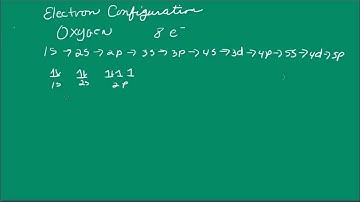 Electron Configuration
OXYGEN 8 e⁻
1s → 2s → 2p → 3s → 3p → 4s → 3d → 4p → 5s → 4d → 5p
1s 2s 2p